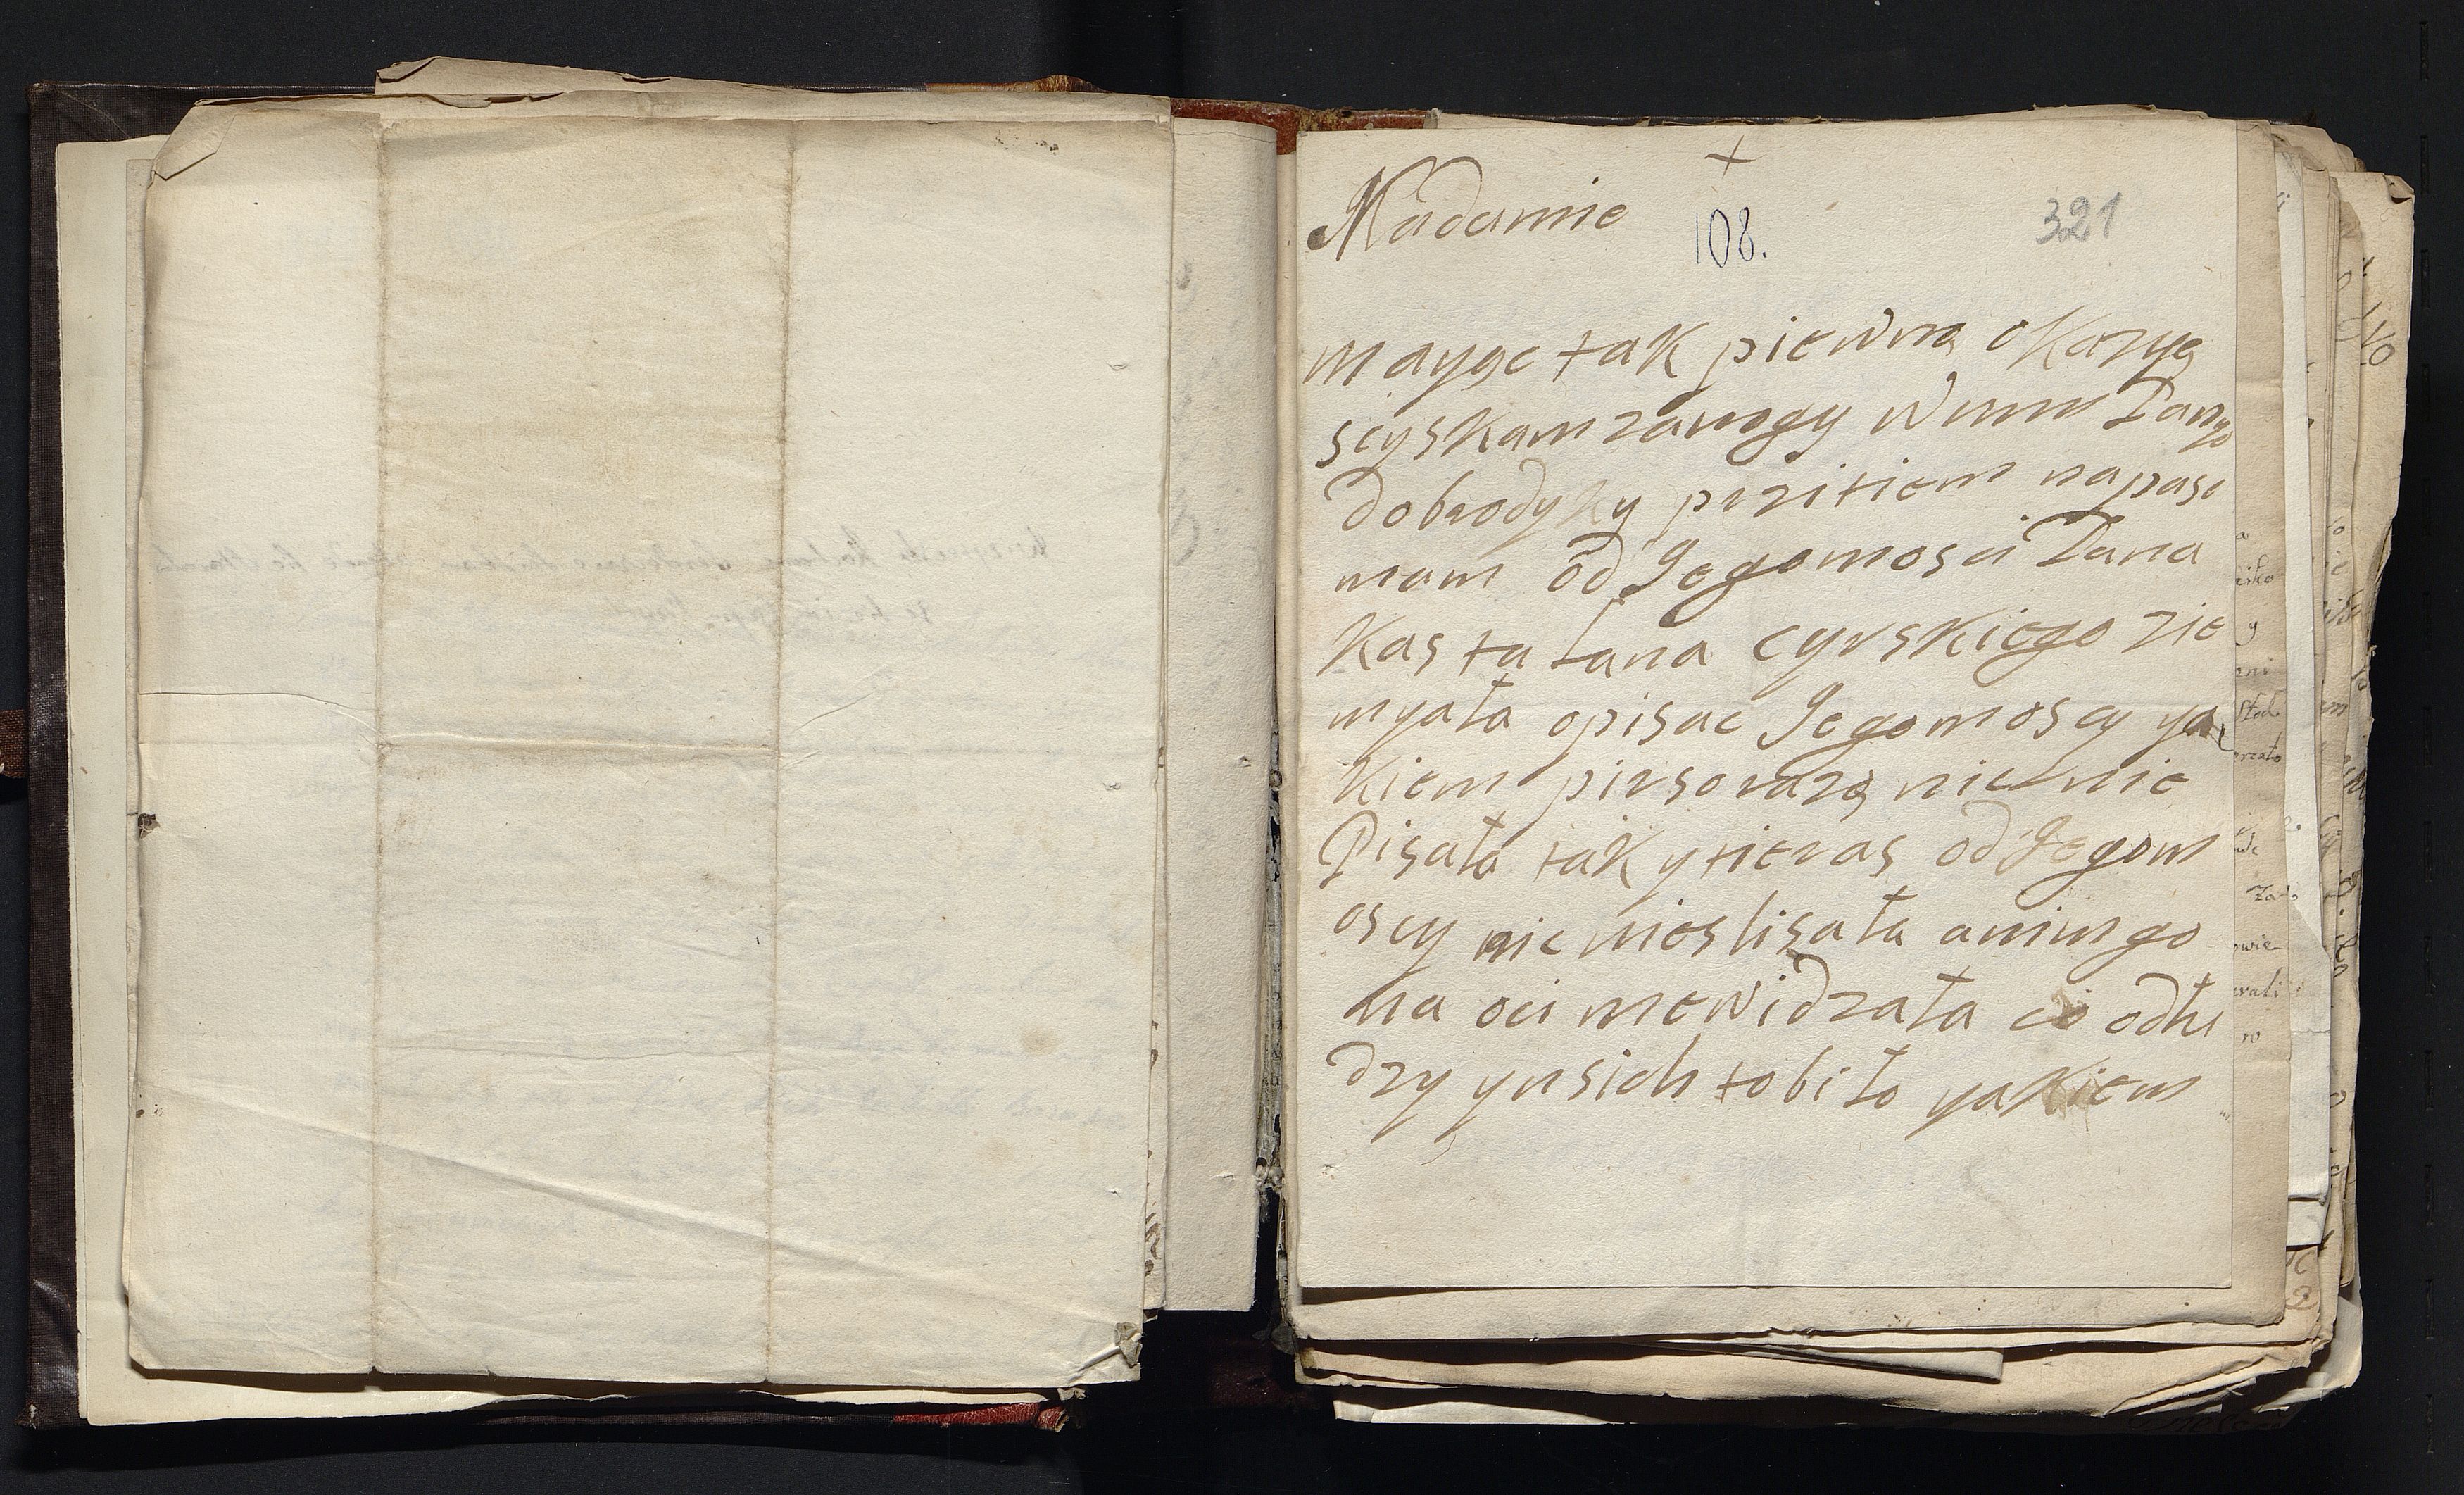 +
Madamie
108.
321
mayąc tak piewną okazyą
sciyskam zanogy wmm Pany
dobrodyky przitiem napasc
mam od Jegomosci Pana
Kasta lana cyrskiego zie
myała opisac Jegomoscy ya
kiem pirsorazą nic nie
Pisała tak y tieras od Jegom
oscy nic nieslisała anim go
na oci niewidzała co odlu
dzy yn sich to biło yakiem